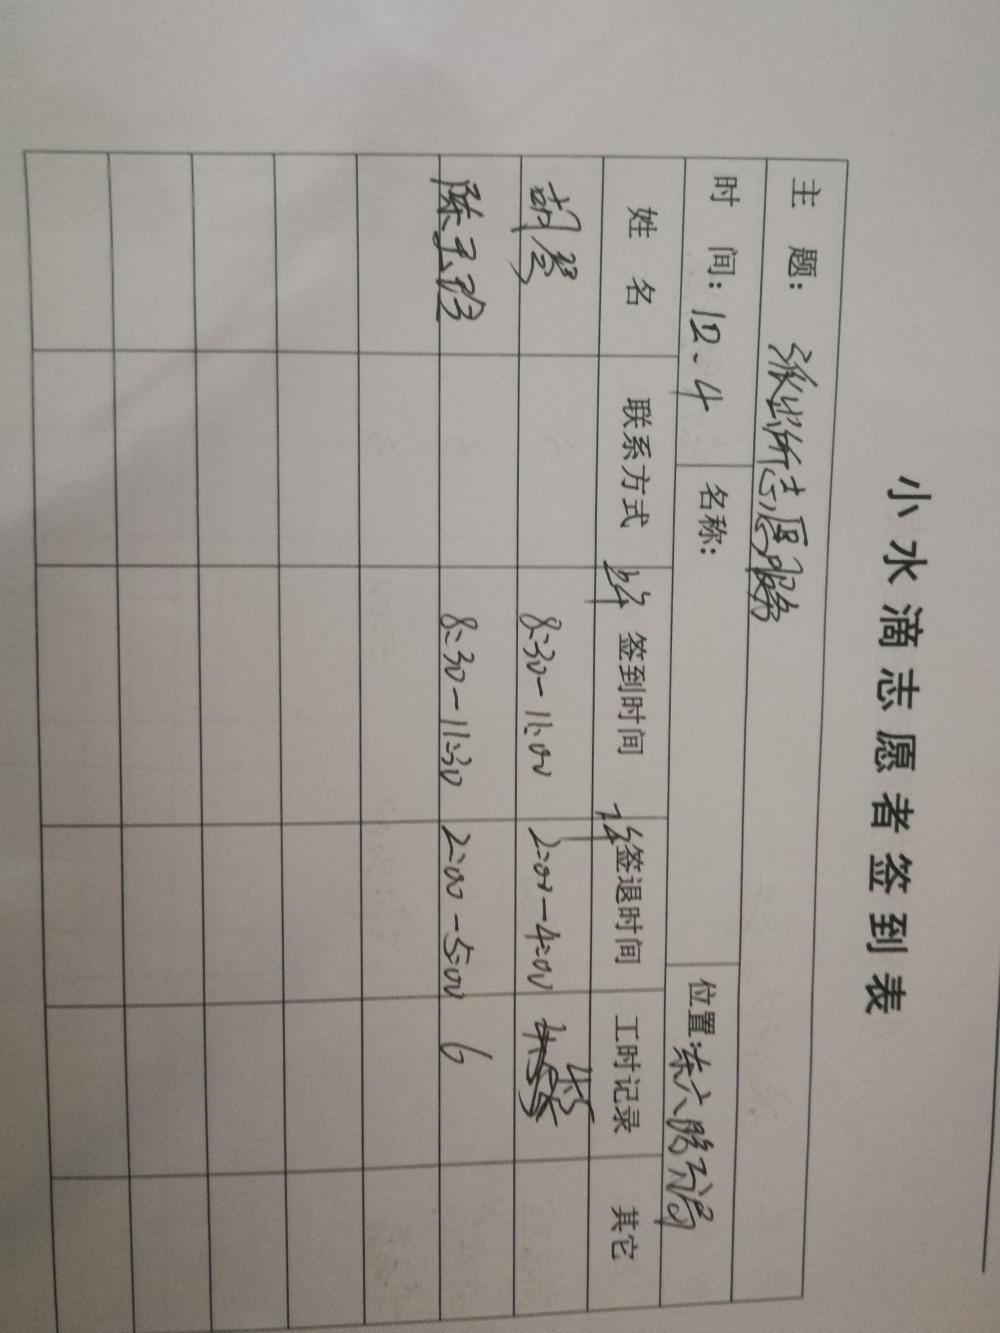 小水滴志愿者签到表
主 题： 派出所志愿服务
时 间：12.4 名称： 位置：东六路
姓 名 联系方式 上午 签到时间 下午 签退时间 工时记录 其它
胡 8:30-11:00 2:00-4:00 4.5
陈 8:30-11:30 2:00-5:00 6